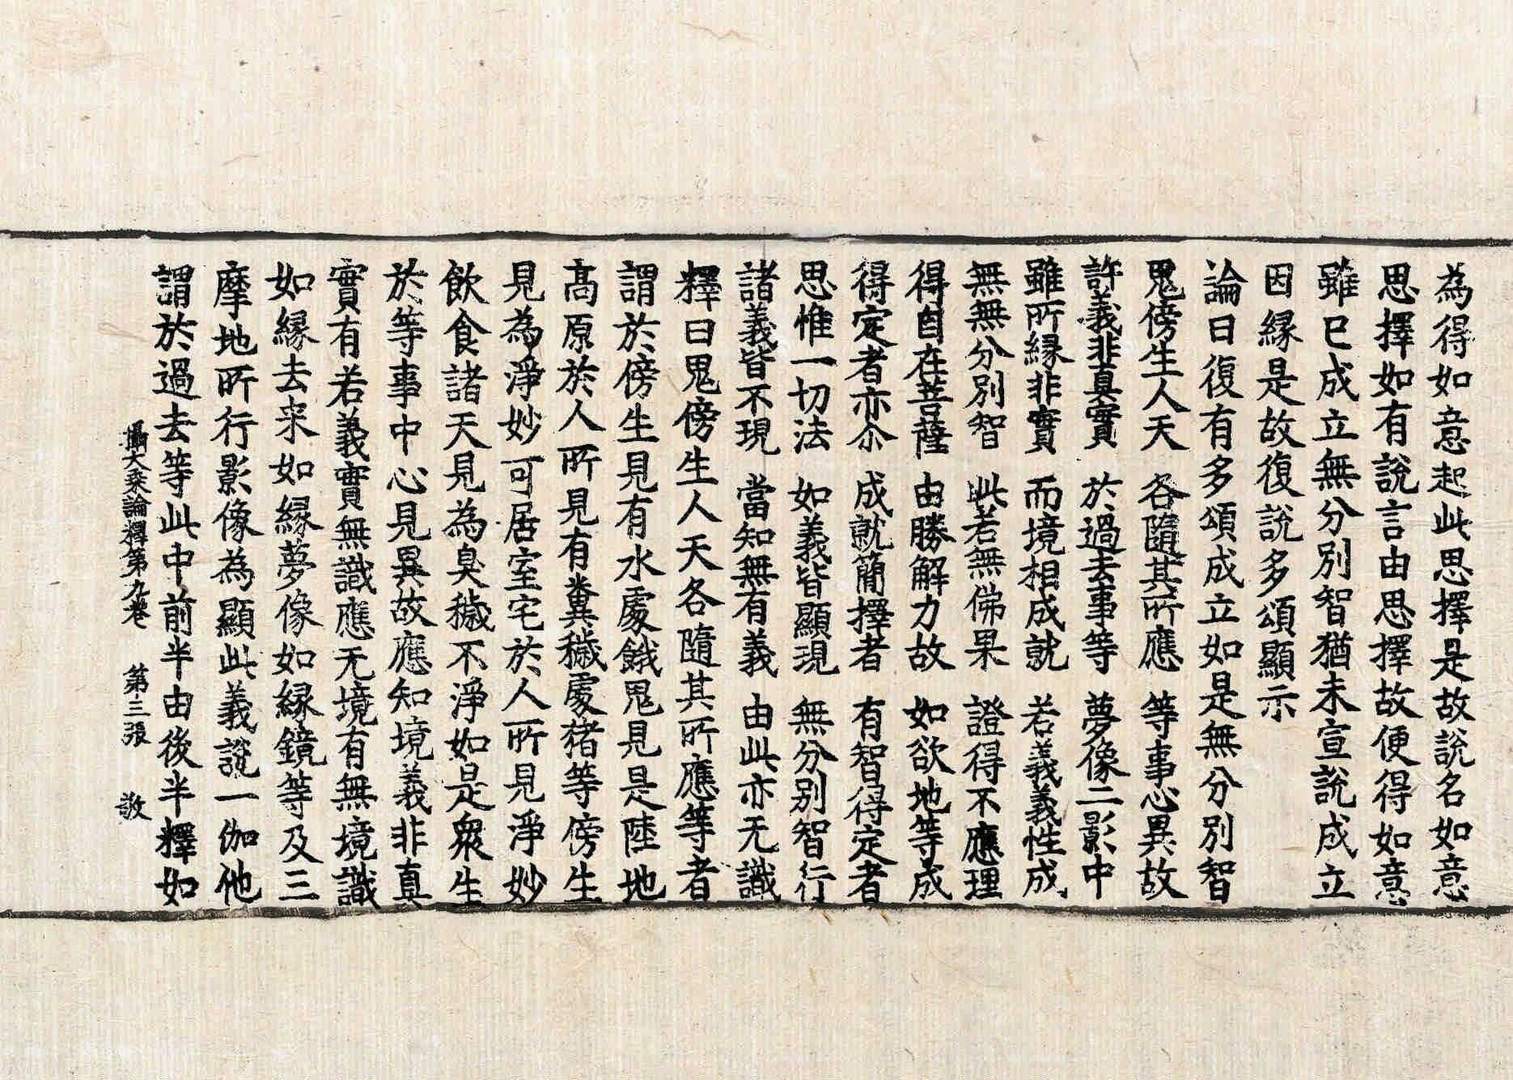 為得如意起此思擇是故說名如意
思擇如有說言由思擇故便得如意
雖已成立無分別智猶未宣說成立
因緣是故復說多頌顯示
論曰復有多頌成立如是無分別智
鬼傍生人天　各隨其所應　等事心異故
許義非真實　於過去事等　夢像二影中
雖所緣非實　而境相成就　若義義性成
無無分別智　此若無佛果　證得不應理
得自在菩薩　由勝解力故　如欲地等成
得定者亦尒　成就簡擇者　有智得定者
思惟一切法　如義皆顯現　無分別智行
諸義皆不現　當知無有義　由此亦无識
釋曰鬼傍生人天各隨其所應等者
謂於傍生見有水處餓鬼見是陸地
高原於人所見有糞穢處猪等傍生
見為淨妙可居室宅於人所見淨妙
飲食諸天見為臭穢不淨如是衆生
於等事中心見異故應知境義非真
實有若義實無識應无境有無境識
如緣去来如緣夢像如緣鏡等及三
摩地所行影像為顯此義說一伽他
謂於過去等此中前半由後半釋如
攝大乘論釋第九卷　第三張　敬